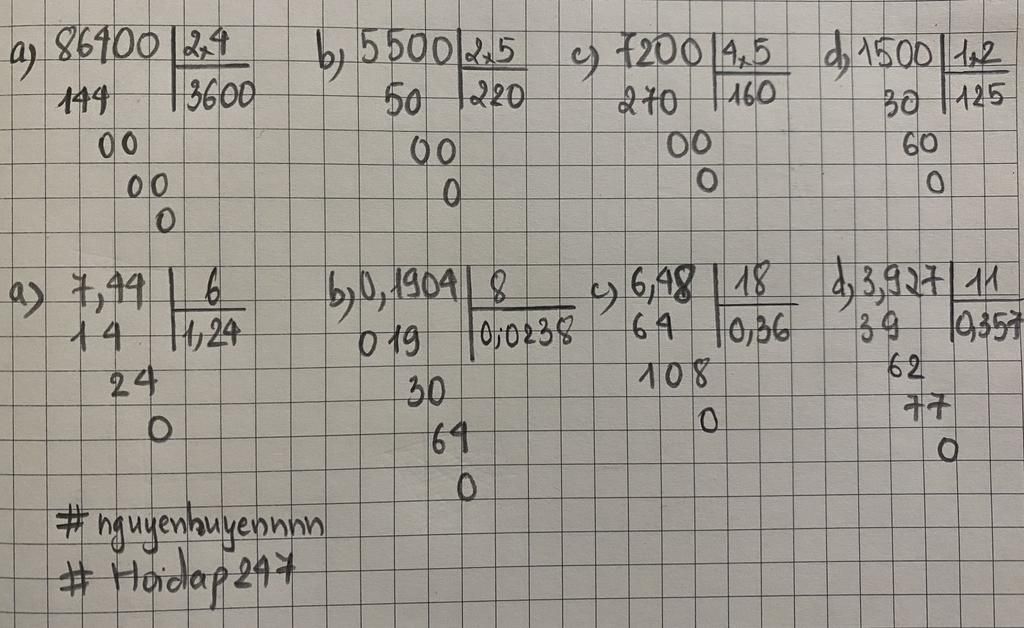 a) 86400 | 2,4 b) 5500 | 2,5 c) 7200 | 4,5 d) 1500 | 1,2
144 | 3600 50 | 220 270 | 160 30 | 125
00 00 00 60
00 0 0 0
0
a) 7,44 | 6 b) 0,1904 | 8 c) 6,48 | 18 d) 3,927 | 11
14 | 1,24 019 | 0,0238 64 | 0,36 39 | 0,357
24 30 108 62
0 64 0 77
0 0
# nguyenhuyennnn
# Hoidap247